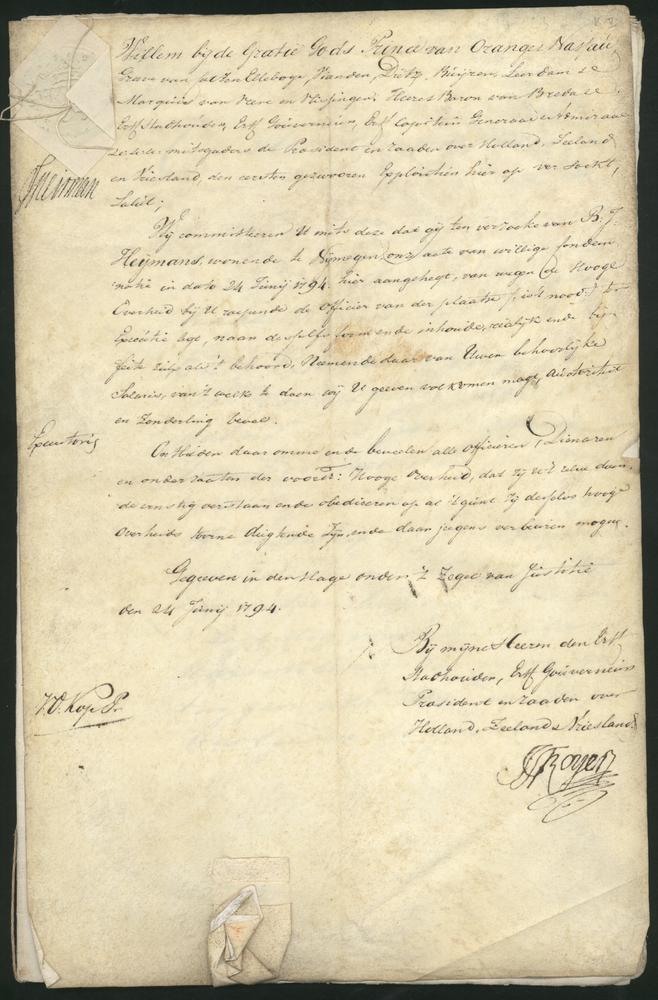 Willem bij de Gratie Gods Prince van Orange & Nassau,
Grave van Catzen Ellebogen, Vianden, Dietz, Buijren, Leerdam &c
Marquis van Veere en Vlissingen, Heere & Baron van Breda &c
Erff Stadhouder, Erff Gouverneur, Erff Capitein Generaal en Admiraal
mitsgaders de President en raaden over Holland, Zeeland
en Vriesland, den eersten gezwooren Exploictier hier op versocht,
Salut;
Wij committeeren U mits deze dat gij ten verzoeke van B. J.
Heijmans, wonende te Nijmegen, onze acte van willige condem
natie in dato 24 Junij 1794. hier aangehegt, van wegen de Hooge
Overheid bij U roepende de officier van der plaatse (is 't nood) ter
Executie legt, naar desselfs form ende inhoude, realijk ende bij
feite zulx als 't behoord, Neemende daar van Uwen behoorlijke
Salaris, van 't welk te doen wij U geeven volkomen magt, Auctoriteit
en Zonderling bevel.
Executoris
Ontbieden daar omme ende beveelen alle officieren, Dienaren
en onderzaaten der voorsz: Hooge Overheid, dat zij U 't zelve doen
de ernstig verstaan ende obedieeren op al 't geent zij desselvs hooge
Overheids toorne duchtende zijn, ende daar jegens verbeuren mogen.
Gegeven in den Hage onder 't Zegel van Justitie
den 24 Junij 1794.
Bij mijne Heeren den Erff
Stadhouder, Erff Gouverneur
President en raaden over
Holland, Zeeland & Vriesland